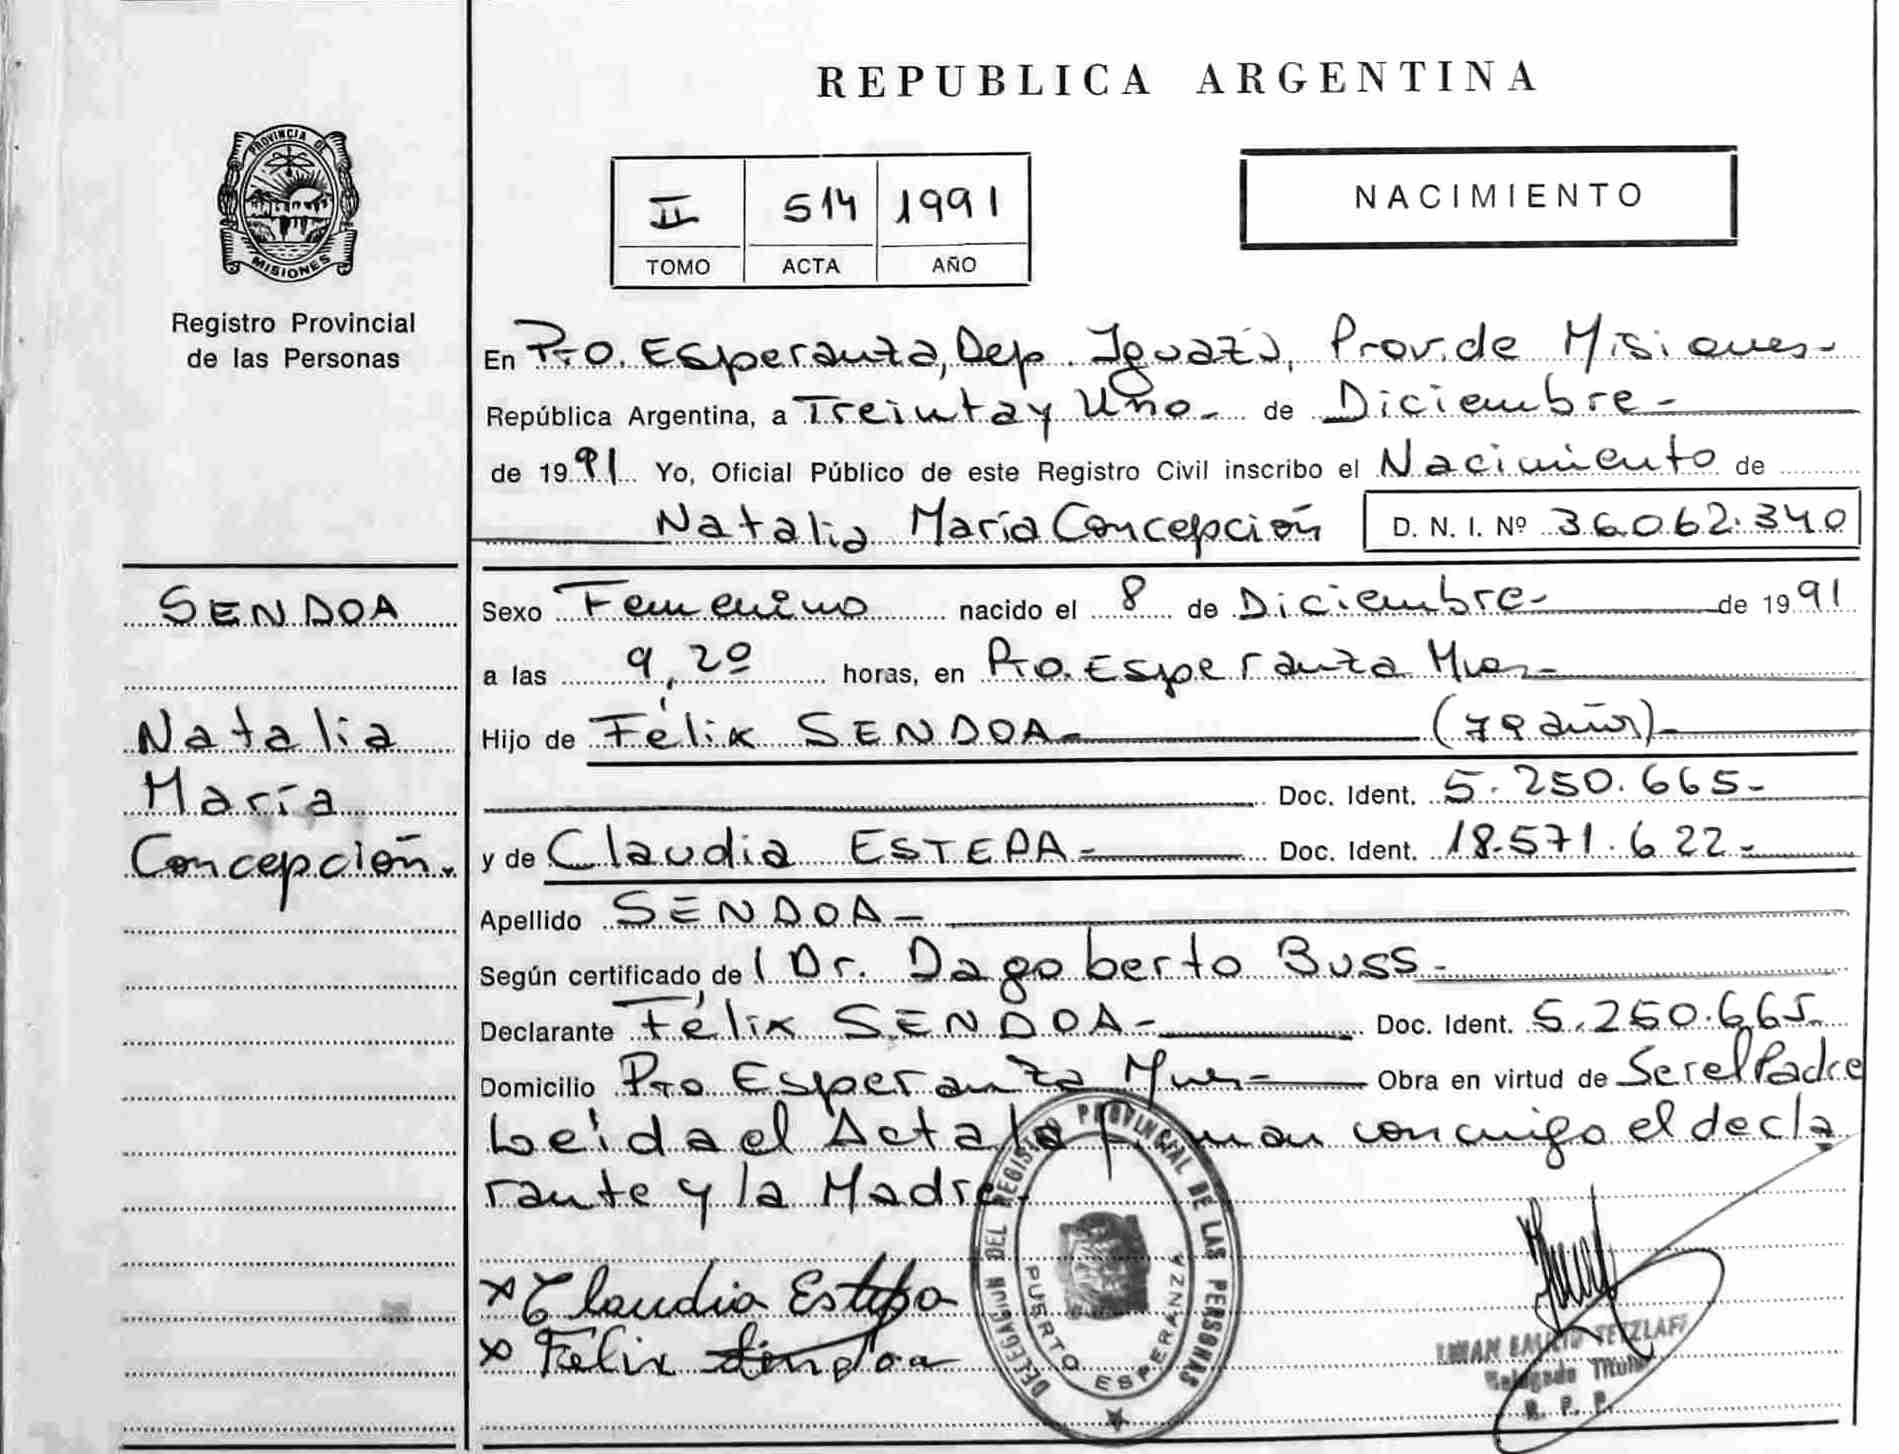 REPUBLICA ARGENTINA
PROVINCIA DE
MISIONES
Registro Provincial
de las Personas
II 514 1991
TOMO ACTA AÑO
NACIMIENTO
En Pto. Esperanza, Dep. Iguazú, Prov. de Misiones-
República Argentina, a Treinta y Uno- de Diciembre-
de 1991 Yo, Oficial Público de este Registro Civil inscribo el Nacimiento de
Natalia María Concepción D. N. I. Nº 36.062.340
SENDOA
Natalia
María
Concepción.
Sexo Femenino nacido el 8 de Diciembre- de 1991
a las 9,20 horas, en Pto. Esperanza Mnes-
Hijo de Félix SENDOA- (79 años)-
Doc. Ident. 5.250.665-
y de Claudia ESTEPA- Doc. Ident. 18.571.622-
Apellido SENDOA-
Según certificado de l Dr. Dagoberto Buss-
Declarante Félix SENDOA- Doc. Ident. 5.250.665
Domicilio Pto Esperanza Mnes- Obra en virtud de Ser el Padre
Leída el Acta la firman conmigo el decla
rante y la Madre.
x Claudia Estepa
x Felix Sendoa
DELEGACION DEL REGISTRO PROVINCIAL DE LAS PERSONAS
PUERTO ESPERANZA
TETZLAFF
Delegado Titular
R. P. P.